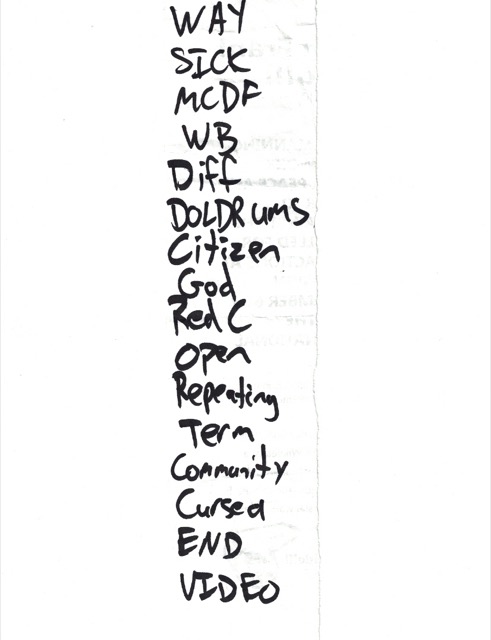 WAY
SICK
MCDF
WB
Diff
DOLDRums
Citizen
God
Red C
open
Repeating
Term
Community
Cursed
END
VIDEO